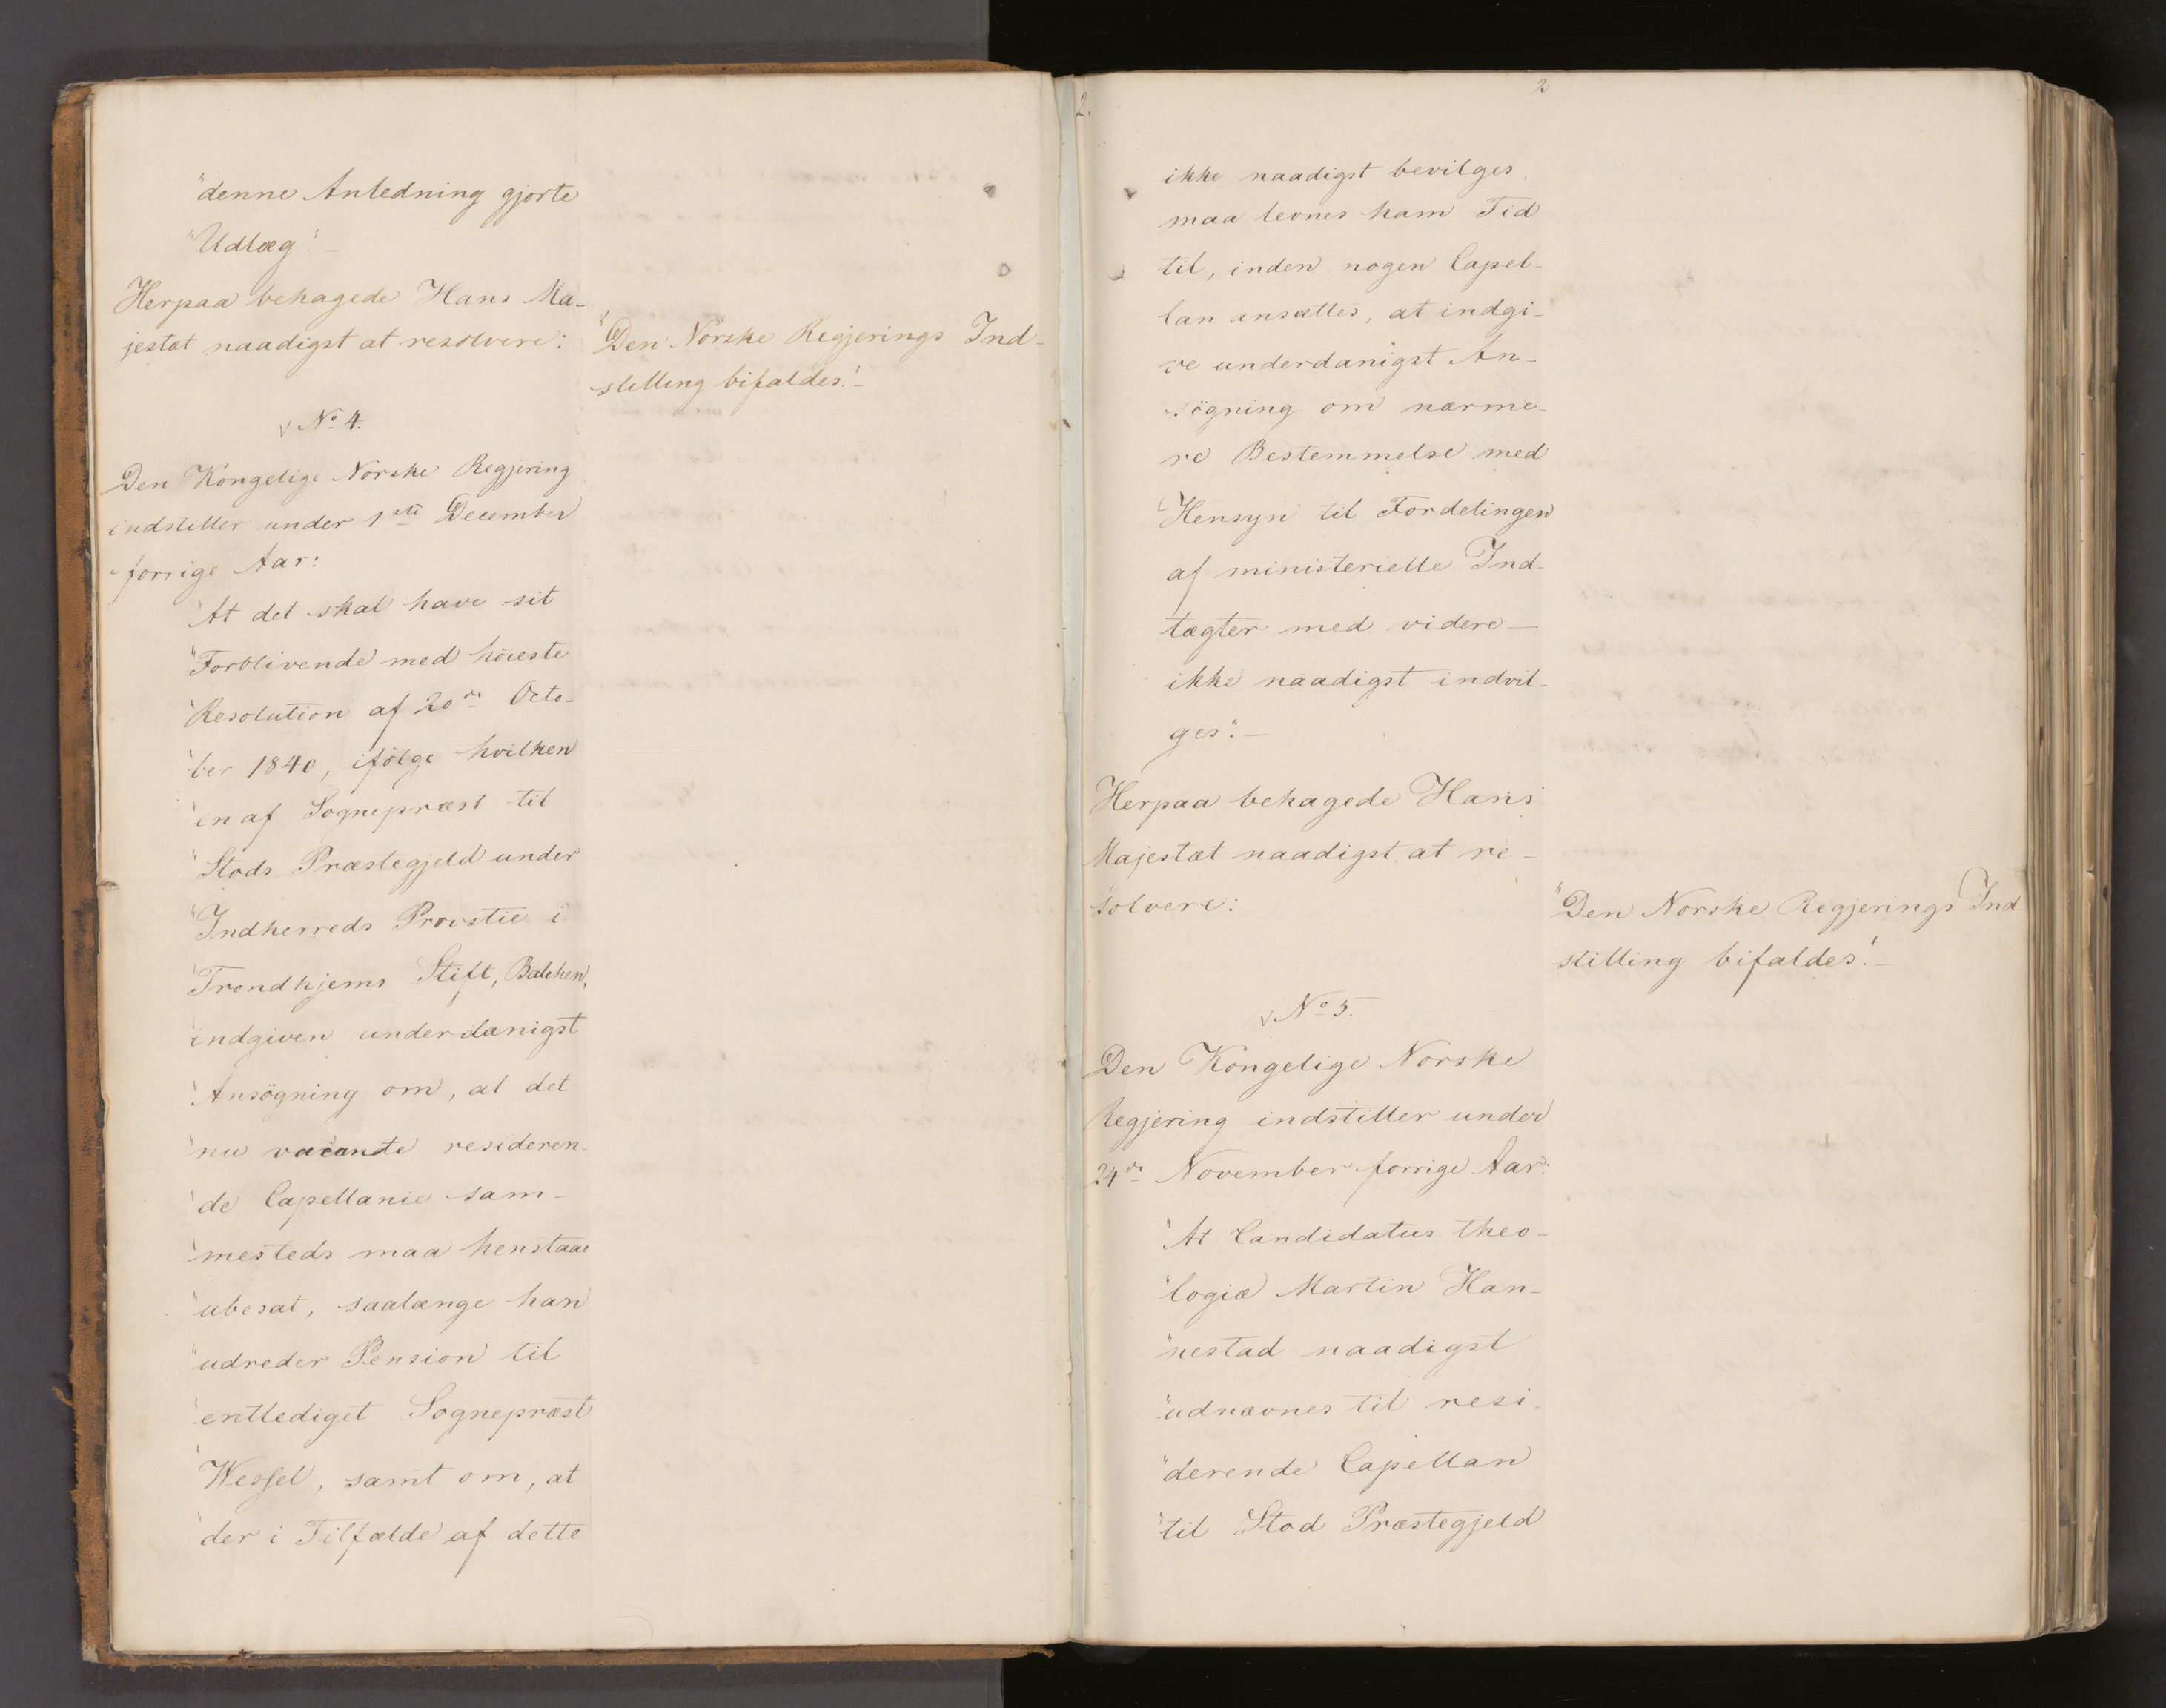 "denne Anledning gjorte
"Udlæg".-
Herpaa behagede Hans Ma-
jestæt naadigst at resolvere:
"Den Norske Regjerings Ind-
stilling bifaldes!"-
No 4.
Den Kongelige Norske Regjering
indstiller under 1ste December
forrige Aar:
"At det skal have sit
"Forblivende med höieste
"Resolution af 20de Octo-
"ber 1840, ifölge hvilken
"en af Sognepræst til
"Stods Præstegjeld under
"Indherreds Provstie i
"Trondhjems Stift, Balchen,
"indgiven underdanigst
"Ansögning om, at det
"nu vacante resideren-
"de Capellanie sam-
"mesteds maa henstaae
"ubesat, saalænge han
"udreder Pension til
"entlediget Sognepræst
"Wessel, samt om, at
"der i Tilfælde af dette
2.
2
ikke naadigst bevilges,
maa levnes ham Tid
til, inden nogen Capel-
lan ansættes, at indgi-
ve underdanigst An-
sögning om nærme-
re Bestemmelse med
Hensyn til Fordelingen
af ministerielle Ind-
tægter med videre —
ikke naadigst indvil-
ges".-
Herpaa behagede Hans
Majestæt naadigst at re-
solvere:
"Den Norske Regjerings Ind
stilling bifaldes!"-
No 5.
Den Kongelige Norske
Regjering indstiller under
24de November forrige Aar:
"At Candidatus theo-
"logiæ Martin Han-
"nestad naadigst
"udnævnes til resi-
"derende Capellan
"til Stod Præstegjeld